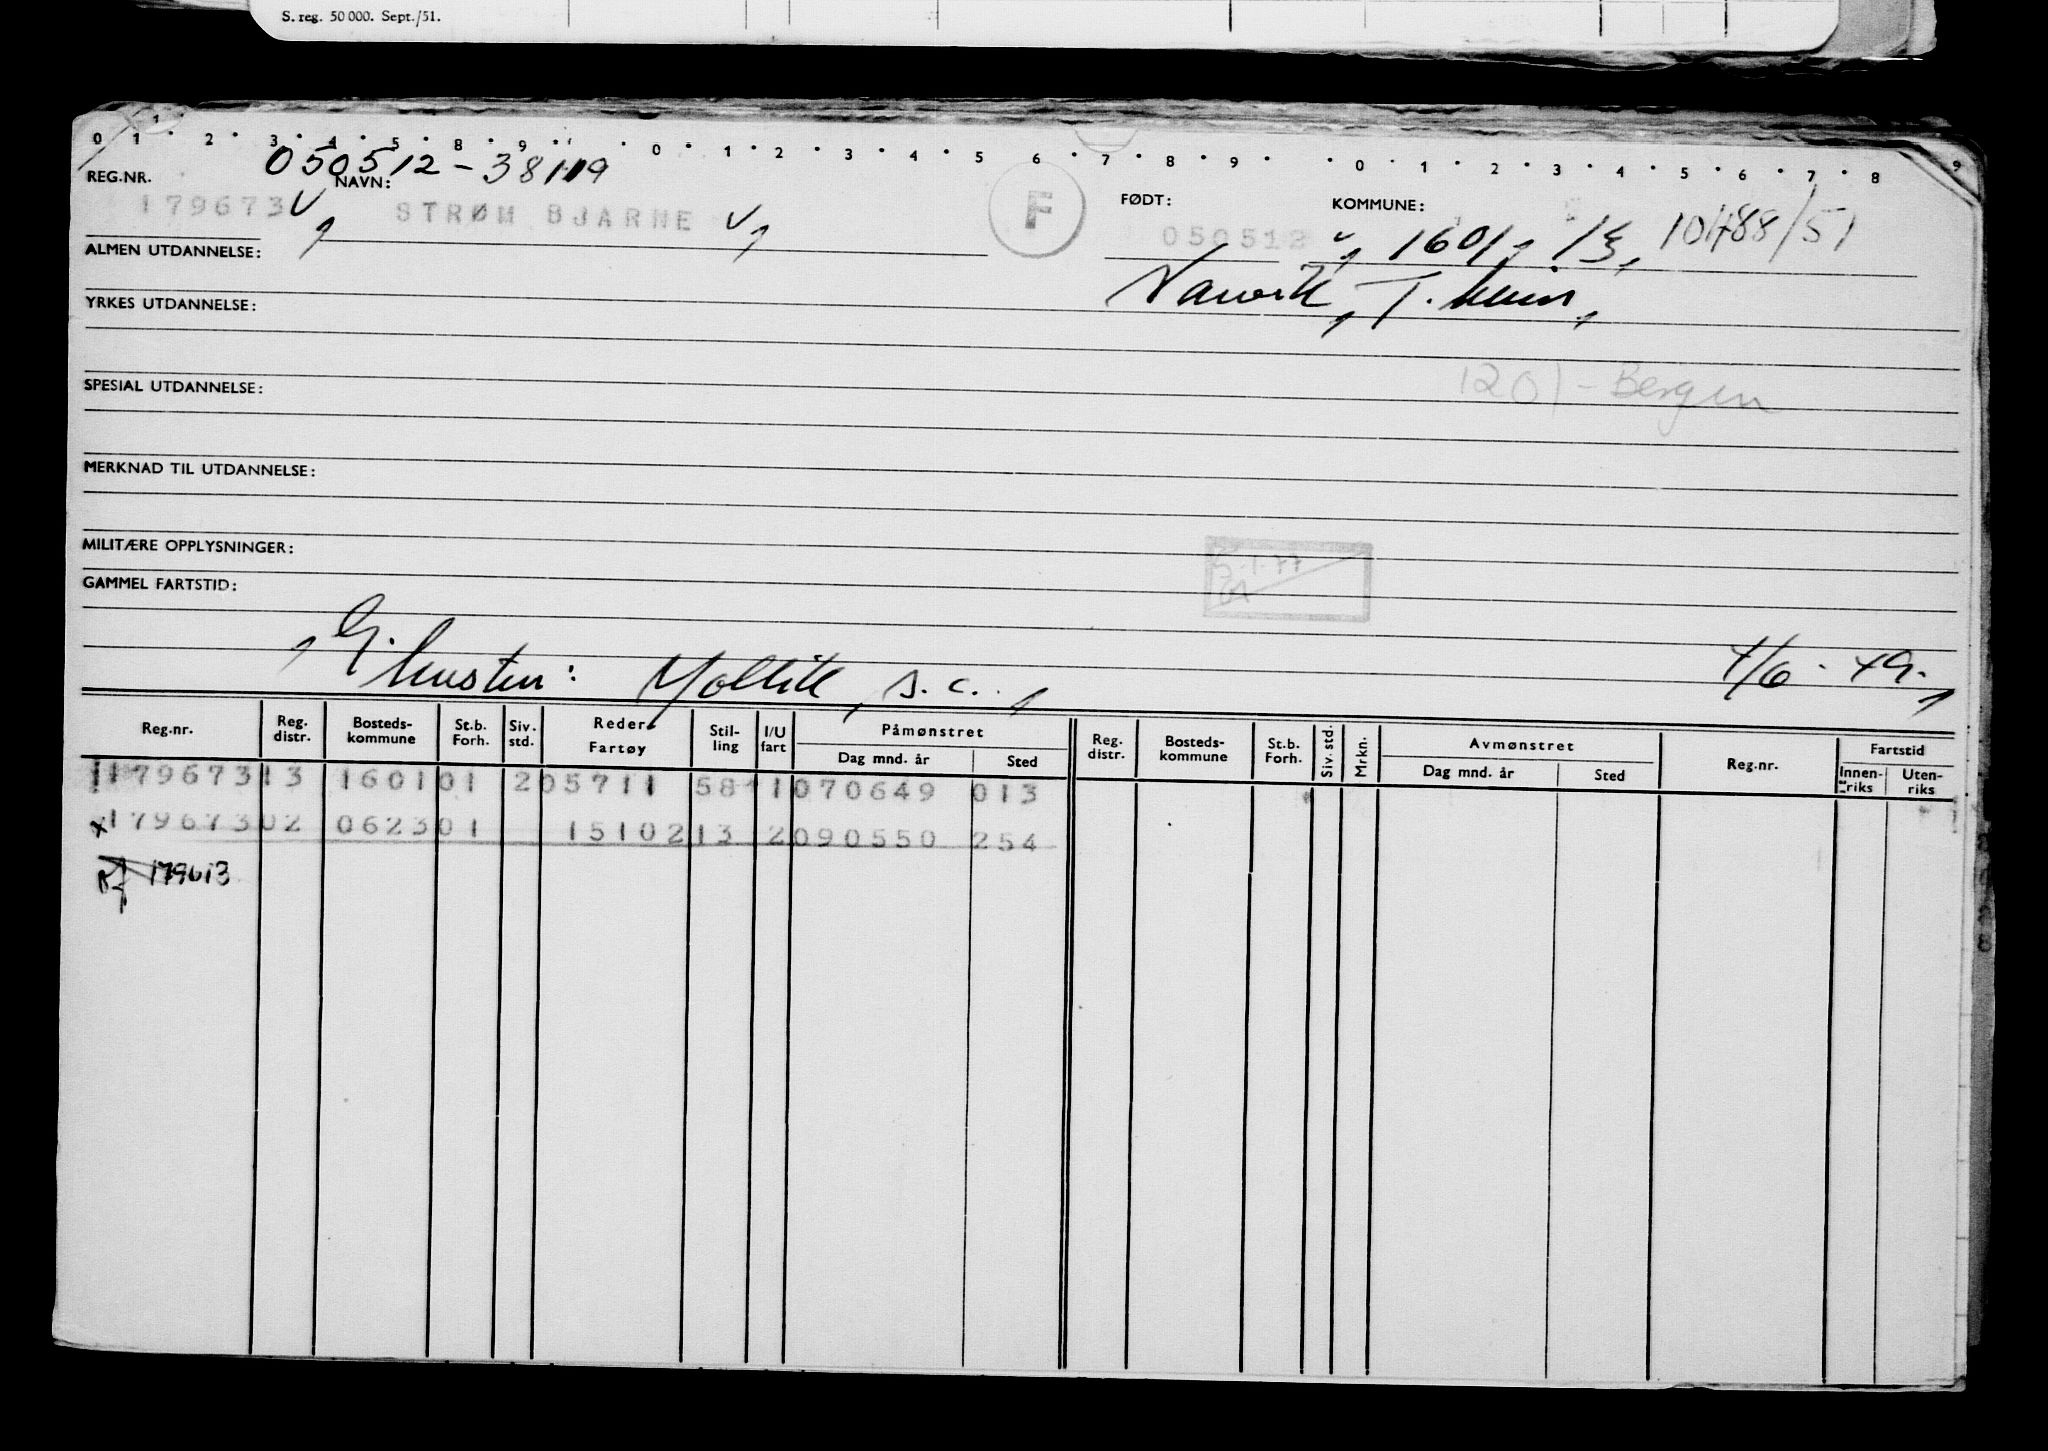 S. reg. 50 000. Sept./51.
0 1 1 2 3 4 5 8 9 0 1 2 3 4 5 6 7 8 9 0 1 2 3 4 5 6 7 8 9
050512-38119
REG.NR. NAVN: FØDT: KOMMUNE:
179673 STRØM BJARNE F 050512 1601, 13, 10488/51
ALMEN UTDANNELSE:
YRKES UTDANNELSE:
1201 - Bergen
SPESIAL UTDANNELSE:
MERKNAD TIL UTDANNELSE:
MILITÆRE OPPLYSNINGER:
5.1.77
GAMMEL FARTSTID:
s.c.,
Reg.nr. Reg. distr. Bosteds-kommune St.b. Forh. Siv. std. Rederi Fartøy Stil-ling I/U fart Påmønstret Dag mnd. år Sted Reg. distr. Bosteds-kommune St.b. Forh. Siv. std. Mrkn. Avmønstret Dag mnd. år Sted Reg.nr. Fartstid Innen-riks Uten-riks
179673 13 1601 01 2 05711 58 1 070649 013
x 179673 02 0623 01 15102 13 2 090550 254